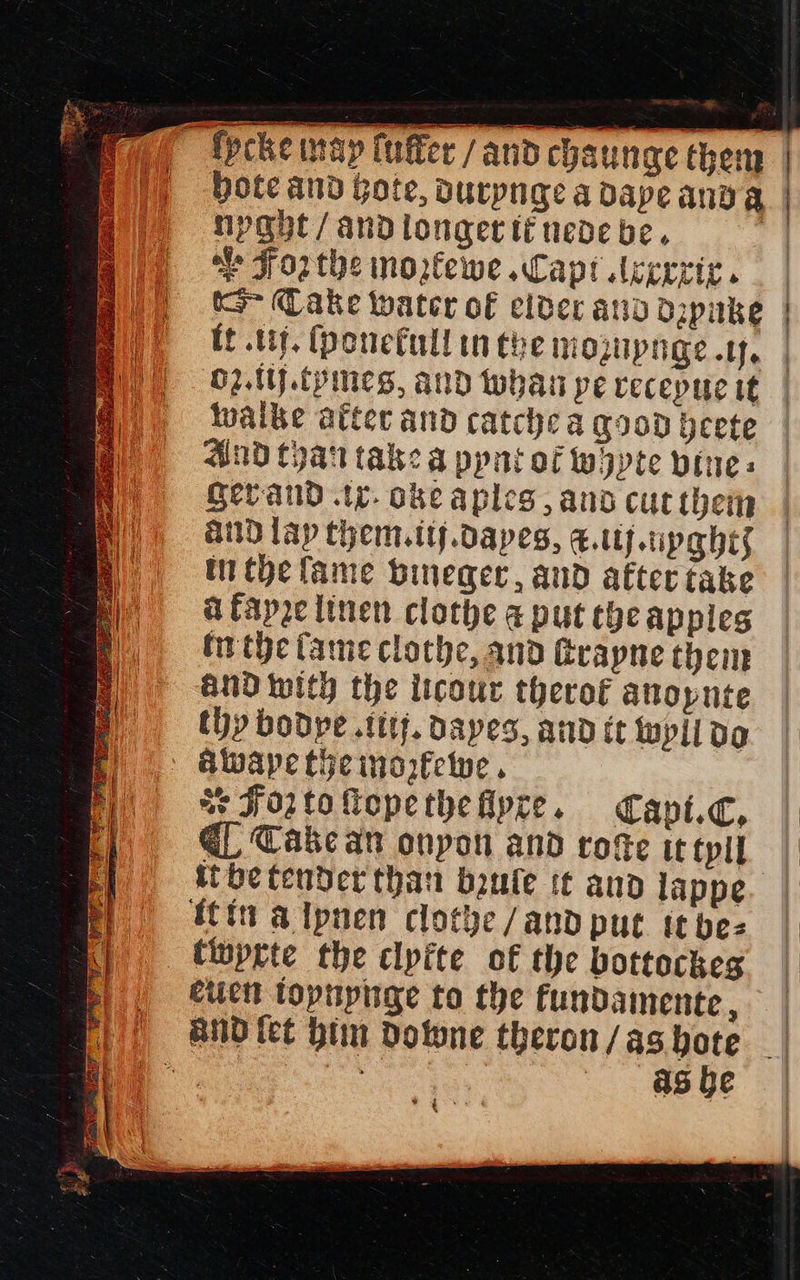 sycke may suffer / and chaunge them
hote and hote, durynge a daye and a
nyght / and longer if nede be.
❧ For the morfewe. Capi .lxxxxix.
☞ Take water of elder and drynke
it .iij. sponefull in the mornynge .ij.
or .iij. tymes, and whan ye receyue it
walke after and catche a good heete
And than take a pynt of whyte vine-
ger and .ix. oke aples, and cut them
and lay them .iij. dayes, ⁊ .iij. nyghtꝭ
in the same vineger, and after take
a fayre linen clothe ⁊ put the apples
in the same clothe, and strayne them
and with the licour therof anoynte
thy bodye .iiij. dayes, and it wyll do
awaye the morfewe.
❧ For to stope the flyxe. Capi. C.
❡ Take an onyon and roste it tyll
it be tender than bruse it and lappe
it in a lynen clothe / and put it be-
twyxte the clyfte of the bottockes
euen ioynynge to the fundamente,
and set him downe theron / as hote
as he